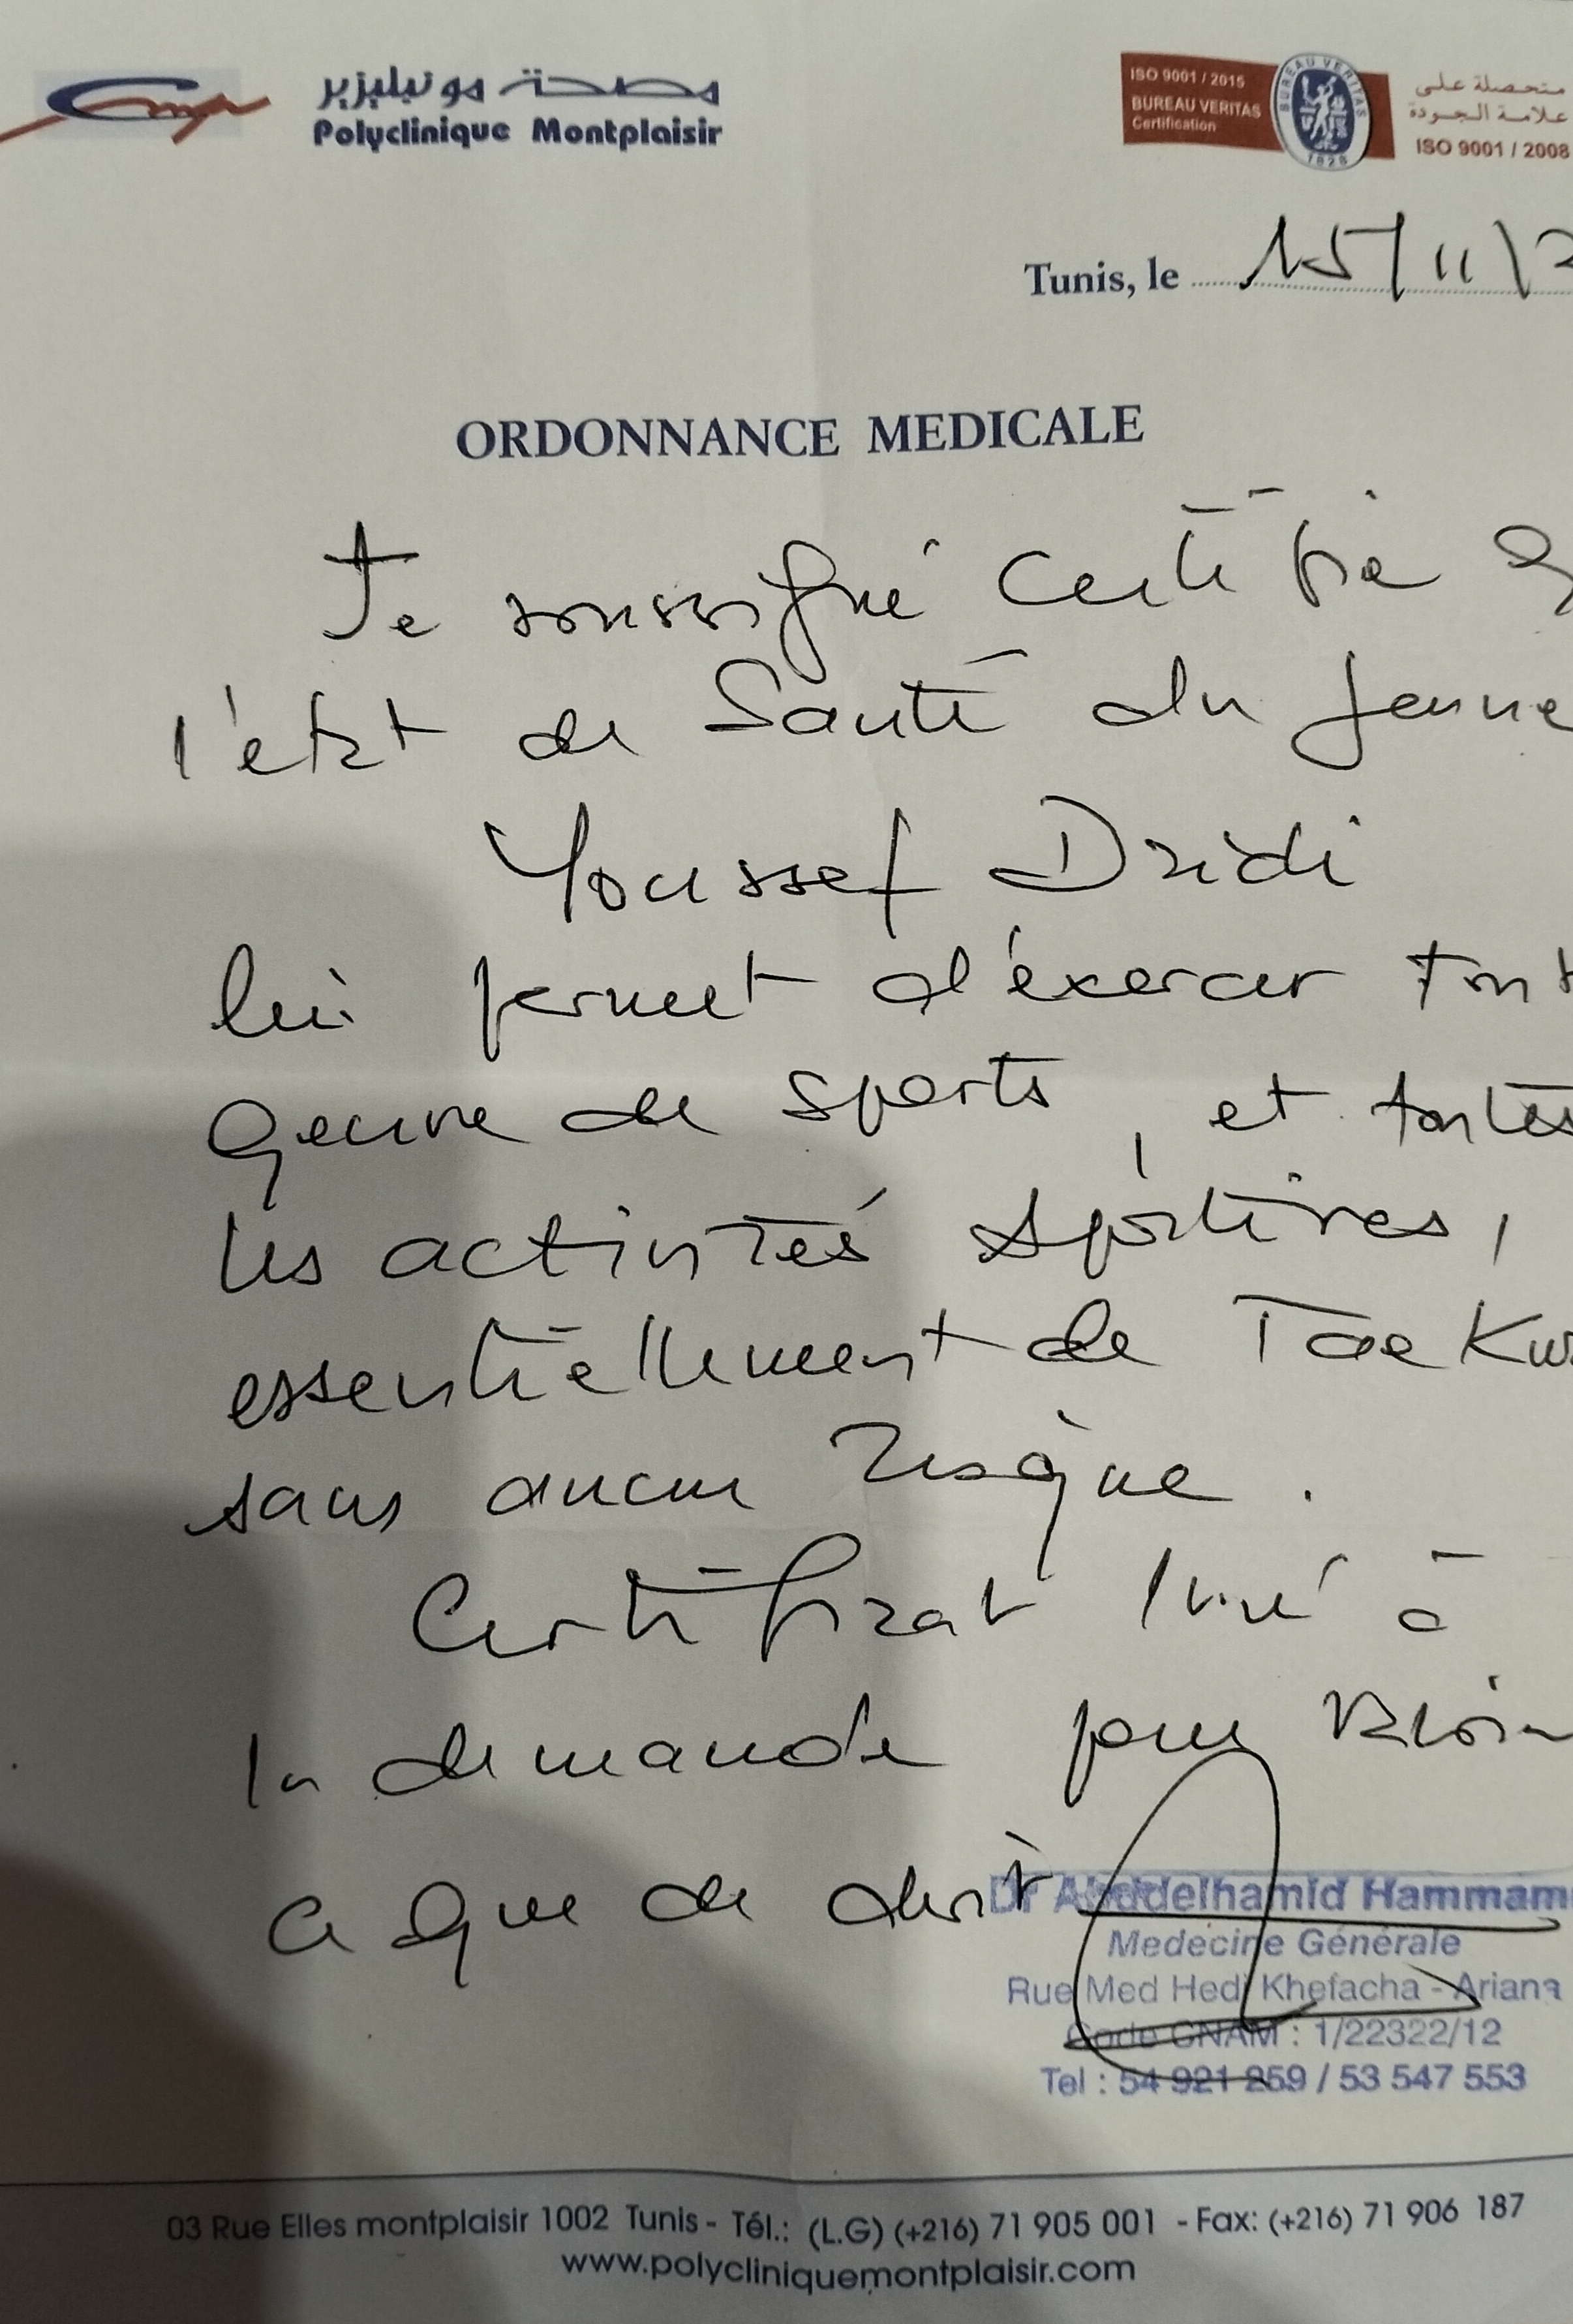 مصحة مونبليزير
Polyclinique Montplaisir
ISO 9001 / 2015
BUREAU VERITAS
Certification
BUREAU VERITAS
1828
متحصلة على
علامة الجودة
ISO 9001 / 2008
Tunis, le 15/11/2
ORDONNANCE MEDICALE
Je soussigné certifie q
l'état de Santé du jeune
Youssef Dridi
lui permet d'éxercer tout
genre de sports, et toutes
les activités sportives,
essentiellement de Tae Kw
sans aucun risque.
Certificat livré à
la demande pour valoir
a que de droit
Dr Abddelhamid Hammam
Medecine Générale
Rue Med Hedi Khefacha - Ariana
Code CNAM : 1/22322/12
Tel : 54 921 259 / 53 547 553
03 Rue Elles montplaisir 1002 Tunis - Tél.: (L.G) (+216) 71 905 001 - Fax: (+216) 71 906 187
www.polycliniquemontplaisir.com